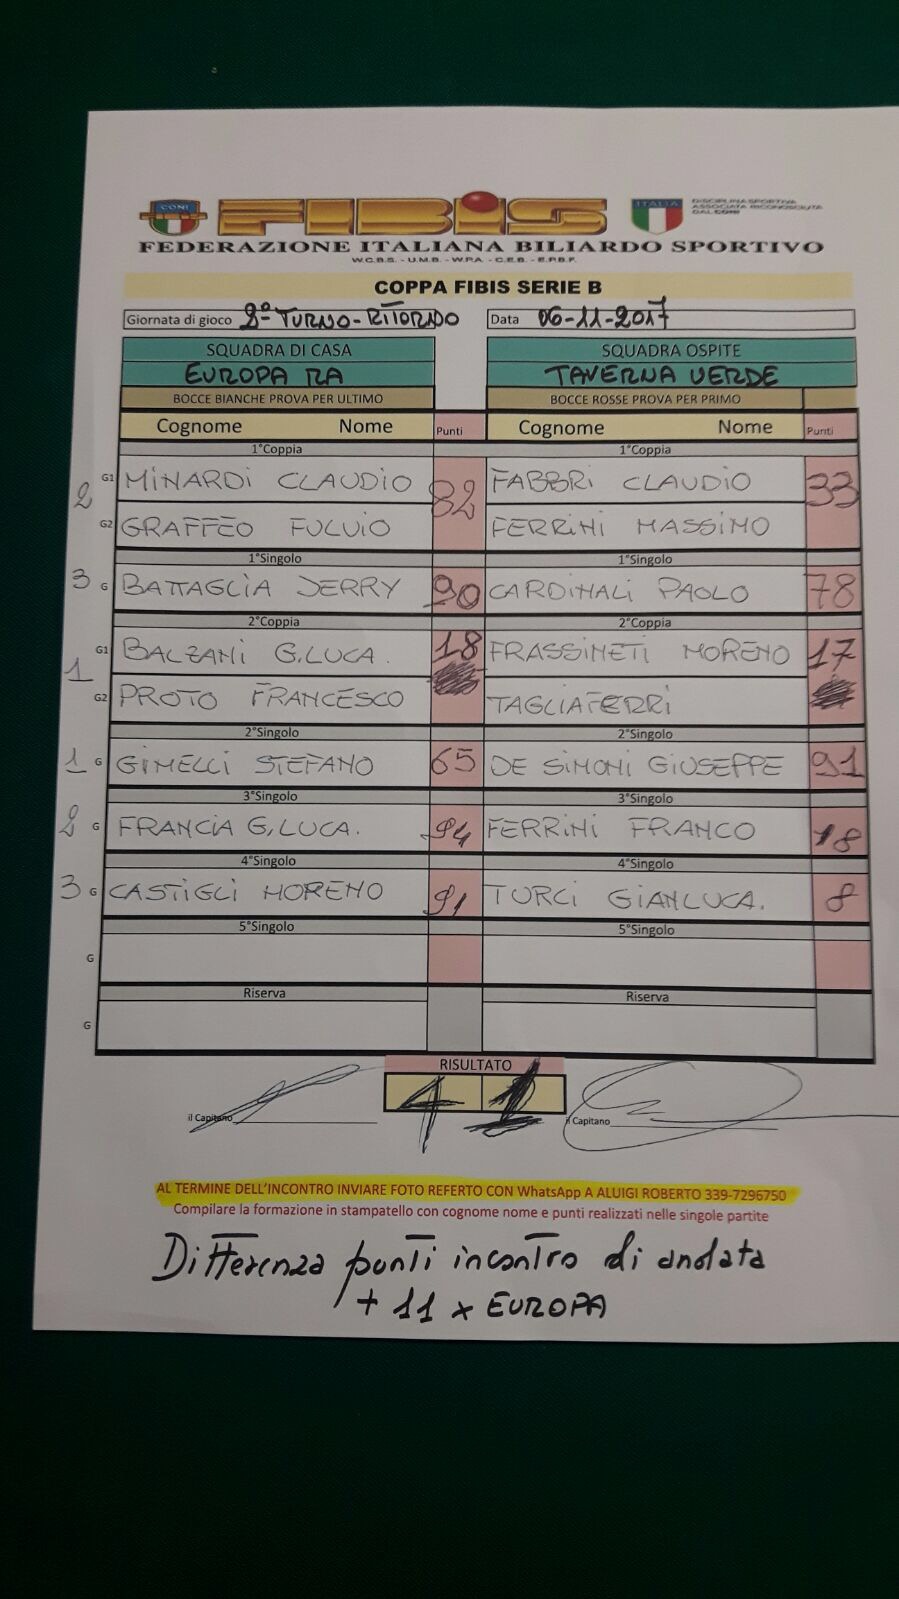 CONI
FIBIS
ITALIA
DISCIPLINA SPORTIVA
ASSOCIATA RICONOSCIUTA
DAL CONI
FEDERAZIONE ITALIANA BILIARDO SPORTIVO
W.C.B.S. - U.M.B. - W.P.A. - C.E.B. - E.P.B.F.
COPPA FIBIS SERIE B
Giornata di gioco 2° TURNO-RITORNO Data 06-11-2017
SQUADRA DI CASA SQUADRA OSPITE
EUROPA RA TAVERNA VERDE
BOCCE BIANCHE PROVA PER ULTIMO BOCCE ROSSE PROVA PER PRIMO
Cognome Nome Punti Cognome Nome Punti
1°Coppia 1°Coppia
2 G1 MINARDI CLAUDIO 82 FABBRI CLAUDIO 33
G2 GRAFFEO FULVIO FERRINI MASSIMO
1°Singolo 1°Singolo
3 G BATTAGLIA JERRY 90 CARDINALI PAOLO 78
2°Coppia 2°Coppia
G1 BALZANI G.LUCA. 18 FRASSINETI MORENO 17
1 G2 PROTO FRANCESCO TAGLIAFERRI
2°Singolo 2°Singolo
1 G GIMELLI STEFANO 65 DE SIMONI GIUSEPPE 91
3°Singolo 3°Singolo
2 G FRANCIA G.LUCA. 94 FERRINI FRANCO 18
4°Singolo 4°Singolo
3 G CASTIGLI MORENO 91 TURCI GIANLUCA. 8
5°Singolo 5°Singolo
G
Riserva Riserva
G
RISULTATO
4 1
il Capitano il Capitano
AL TERMINE DELL'INCONTRO INVIARE FOTO REFERTO CON WhatsApp A ALUIGI ROBERTO 339-7296750
Compilare la formazione in stampatello con cognome nome e punti realizzati nelle singole partite
Differenza punti incontro di andata
+ 11 x EUROPA